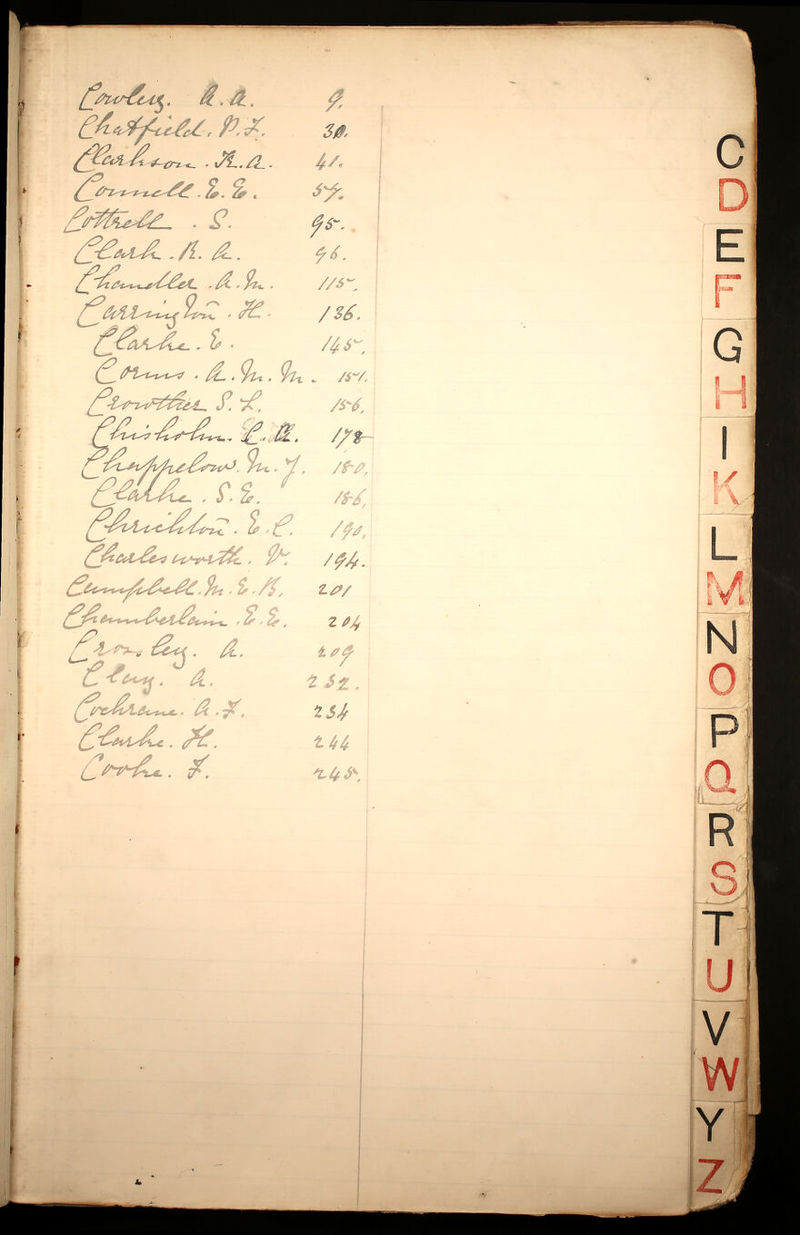 Cowley. A. A. 9.
Chatfield. P. F. 30.
Clarkson. H. A. 41.
Connell. E. E. 57.
Cottrell. S. 95.
Clark. R. A. 96.
Chandler. A. M. 115.
Carrington. H. 136.
Clarke. E. 145.
Corms. A. M. M. 151.
Crowther S. L. 156.
Chisholm. C. 178
Chappelow. M. J. 180.
Clarke. S. E. 186.
Chrichton. E. C. 190.
Charlesworth. V. 194.
Campbell. M. E. R. 201
Chamberlain. E. E. 204
Crossley. A. 209
Clay. A. 232.
Cochrane. A. F. 234
Clarke. H. 244
Cooke. F. 245.
C
D
E
F
G
H
I
K
L
M
N
O
P
Q
R
S
T
U
V
W
Y
Z